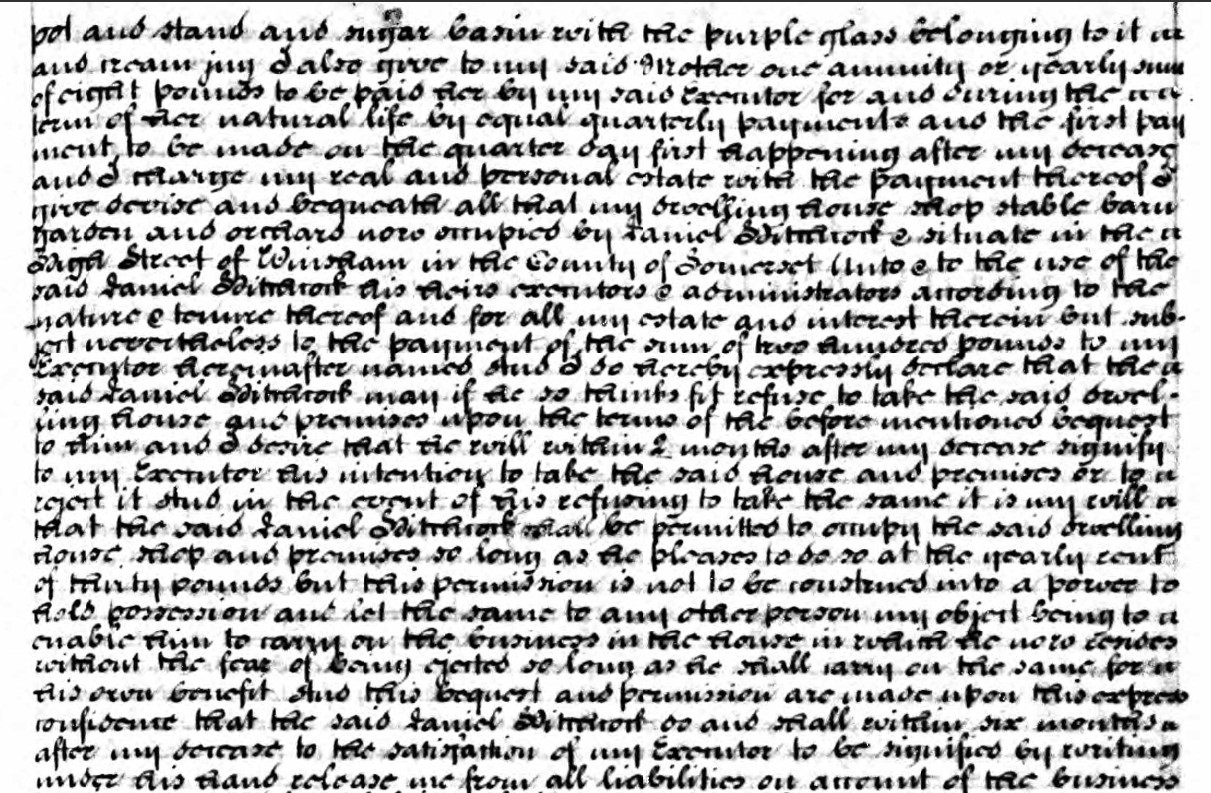 pot and stand and sugar basin with the purple glass belonging to it
and cream jug I also give to my said Mother one annuity or yearly sum
of eight pounds to be paid her by my said Executor for and during the
term of her natural life by equal quarterly payments and the first pay
ment to be made on the quarter day first happening after my decease
and I charge my real and personal estate with the payment thereof I
give devise and bequeath all that my dwelling house shop stable barn
garden and orchard now occupied by Daniel Hitchcock & situate in the
High Street of Wincham in the County of Somerset Unto & to the use of the
said Daniel Hitchcock his heirs executors & administrators according to the
nature & tenure thereof and for all my estate and interest therein but sub-
ject nevertheless to the payment of the sum of two hundred pounds to my
Executor hereinafter named And I do hereby expressly declare that the
said Daniel Hitchcock may if he so thinks fit refuse to take the said dwel-
ling house and premises upon the terms of the before mentioned bequest
to him and I desire that he will within 2 months after my decease signify
to my Executor his intention to take the said house and premises or to
reject it And in the event of his refusing to take the same it is my will
that the said Daniel Hitchcock shall be permitted to occupy the said dwelling
house shop and premises so long as he pleases to do so at the yearly rent
of thirty pounds but this permission is not to be construed into a power to
hold possession and let the same to any other person my object being to
enable him to carry on the business in the house in which he now resides
without the fear of being ejected so long as he shall carry on the same for
his own benefit And this bequest and permission are made upon this express
confidence that the said Daniel Hitchcock do and shall within six months
after my decease to the satisfaction of my Executor to be signified by writing
under his hand release me from all liabilities on account of the business